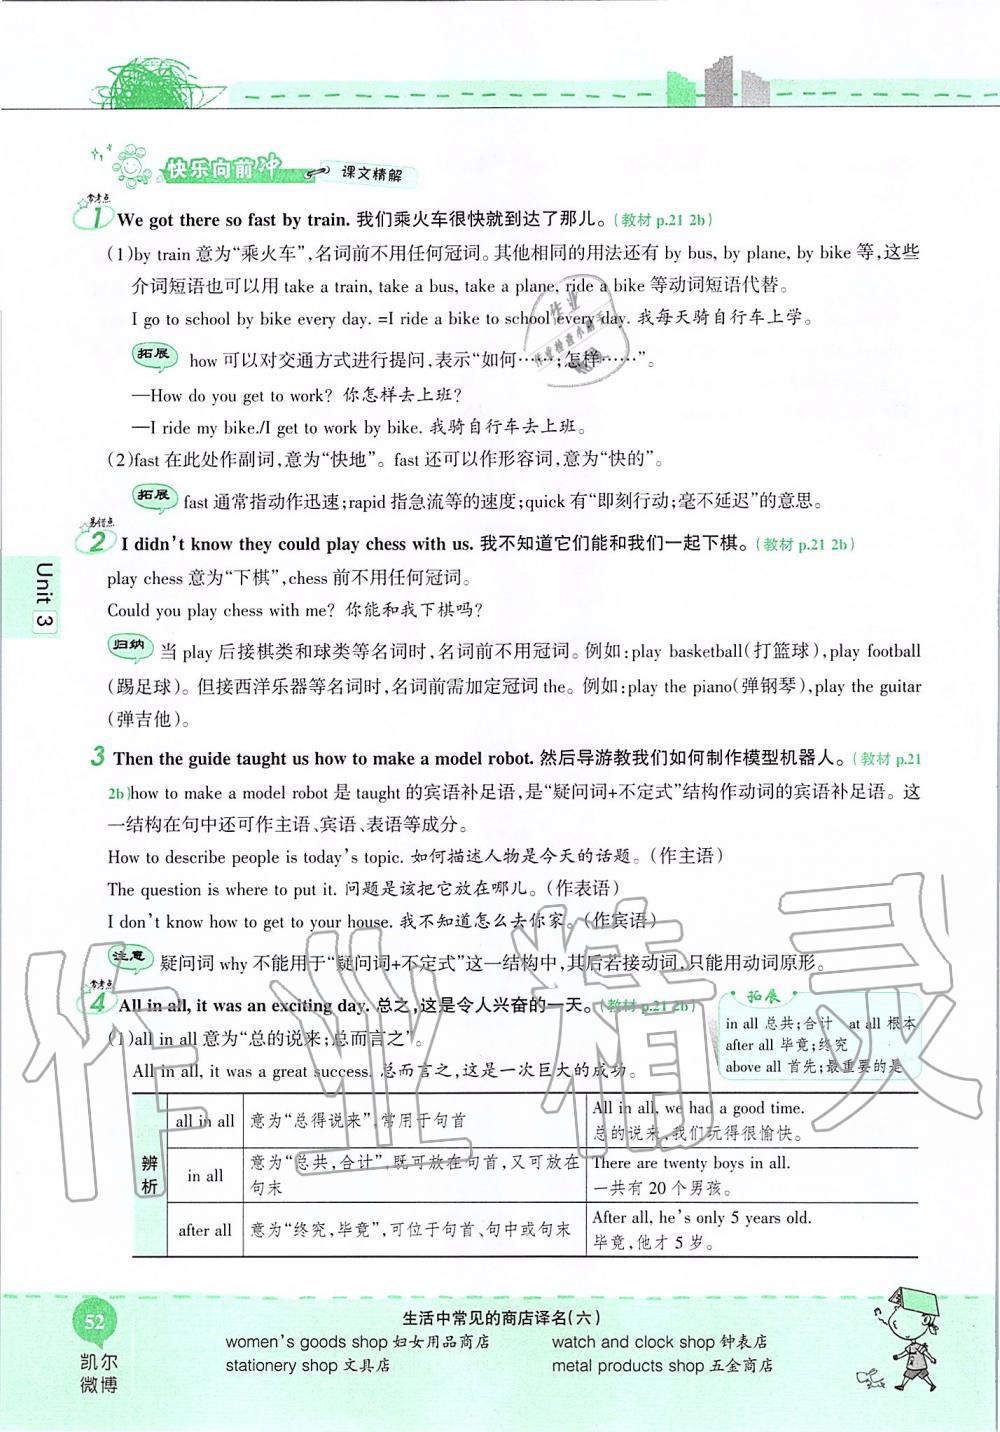 快乐向前冲 课文精解
常考点
1 We got there so fast by train. 我们乘火车很快就到达了那儿。(教材 p.21 2b)
(1)by train 意为“乘火车”,名词前不用任何冠词。其他相同的用法还有 by bus, by plane, by bike 等,这些
介词短语也可以用 take a train, take a bus, take a plane, ride a bike 等动词短语代替。
I go to school by bike every day. =I ride a bike to school every day. 我每天骑自行车上学。
拓展 how 可以对交通方式进行提问,表示“如何……;怎样……”。
—How do you get to work? 你怎样去上班?
—I ride my bike./I get to work by bike. 我骑自行车去上班。
(2)fast 在此处作副词,意为“快地”。fast 还可以作形容词,意为“快的”。
拓展 fast 通常指动作迅速;rapid 指急流等的速度;quick 有“即刻行动;毫不延迟”的意思。
易错点
2 I didn't know they could play chess with us. 我不知道它们能和我们一起下棋。(教材 p.21 2b)
play chess 意为“下棋”,chess 前不用任何冠词。
Could you play chess with me? 你能和我下棋吗?
归纳 当 play 后接棋类和球类等名词时,名词前不用冠词。例如:play basketball(打篮球),play football
(踢足球)。但接西洋乐器等名词时,名词前需加定冠词 the。例如:play the piano(弹钢琴),play the guitar
(弹吉他)。
Unit 3
3 Then the guide taught us how to make a model robot. 然后导游教我们如何制作模型机器人。(教材 p.21
2b)how to make a model robot 是 taught 的宾语补足语,是“疑问词+不定式”结构作动词的宾语补足语。这
一结构在句中还可作主语、宾语、表语等成分。
How to describe people is today's topic. 如何描述人物是今天的话题。(作主语)
The question is where to put it. 问题是该把它放在哪儿。(作表语)
I don't know how to get to your house. 我不知道怎么去你家。(作宾语)
注意 疑问词 why 不能用于“疑问词+不定式”这一结构中,其后若接动词,只能用动词原形。
常考点
4 All in all, it was an exciting day. 总之,这是令人兴奋的一天。(教材 p.21 2b)
(1)all in all 意为“总的说来;总而言之”。
All in all, it was a great success. 总而言之,这是一次巨大的成功。
拓展
in all 总共;合计 at all 根本
after all 毕竟;终究
above all 首先;最重要的是
辨析
all in all 意为“总得说来”,常用于句首 All in all, we had a good time.
总的说来,我们玩得很愉快。
in all 意为“总共,合计”,既可放在句首,又可放在 There are twenty boys in all.
句末 一共有 20 个男孩。
after all 意为“终究,毕竟”,可位于句首、句中或句末 After all, he's only 5 years old.
毕竟,他才 5 岁。
作业精灵
52
凯尔
微博
生活中常见的商店译名(六)
women's goods shop 妇女用品商店 watch and clock shop 钟表店
stationery shop 文具店 metal products shop 五金商店